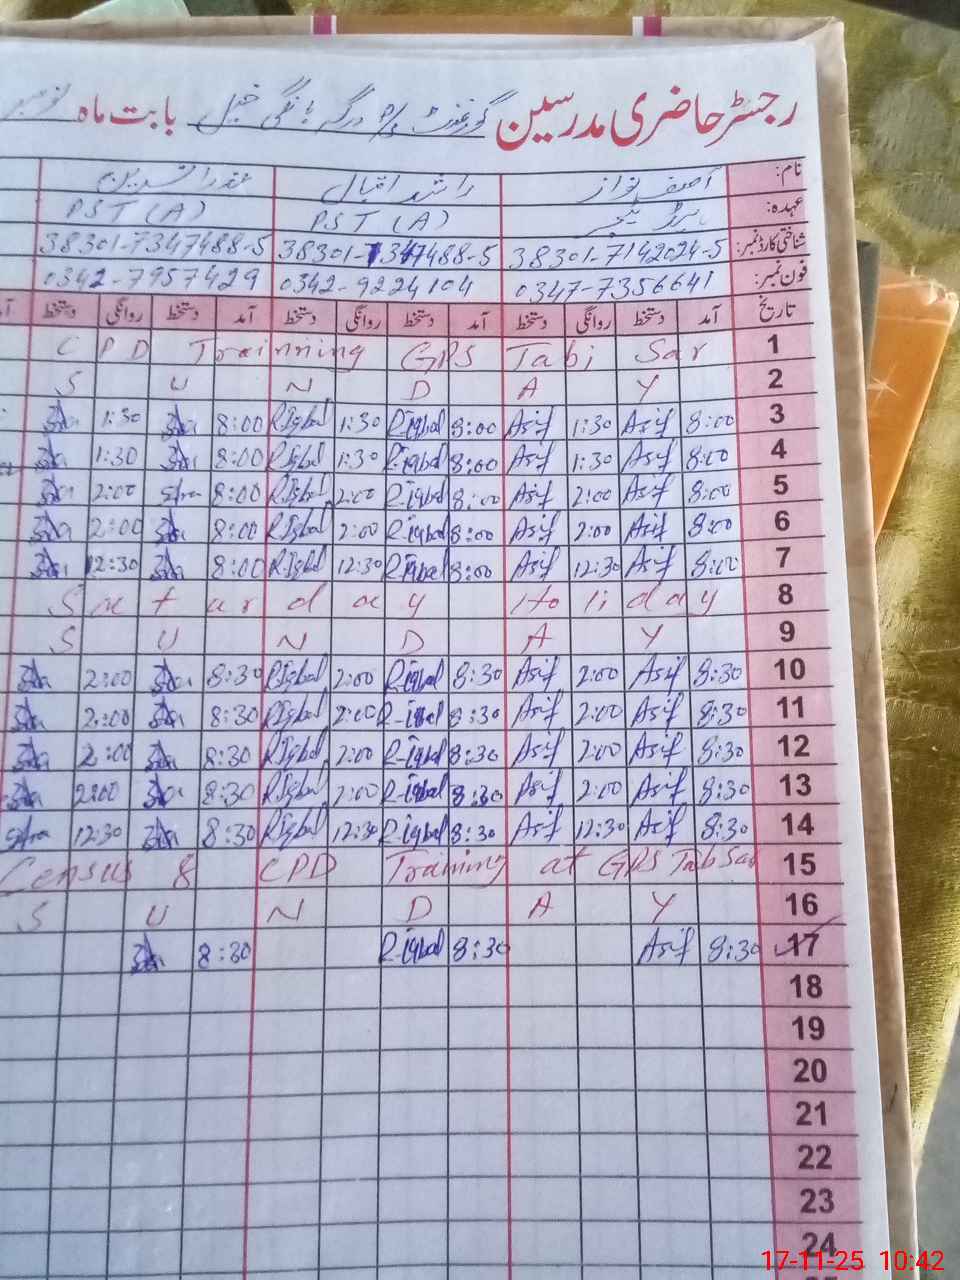 رجسٹر حاضری مدرسین گورنمنٹ P/S درگہ بابت ماہ نومبر
نام: آصف نواز راشد اقبال عذرا نسرین
عہدہ: ہیڈ ٹیچر PST (A) PST (A)
شناختی کارڈ نمبر: 38301-7142024-5 38301-7347488-5 38301-7347488-5
فون نمبر: 0347-7356641 0342-9224104 0342-7957429
تاریخ آمد دستخط روانگی دستخط آمد دستخط روانگی دستخط آمد دستخط روانگی دستخط
1 CPD Trainning GPS Tabi Sar
2 S U N D A Y
3 8:00 Asif 1:30 Asif 8:00 R-iqbal 1:30 R.Iqbal 8:00 1:30
4 8:00 Asif 1:30 Asif 8:00 R-iqbal 1:30 R.Iqbal 8:00 1:30
5 8:00 Asif 2:00 Asif 8:00 R-iqbal 2:00 R.Iqbal 8:00 2:00
6 8:00 Asif 2:00 Asif 8:00 R-iqbal 2:00 R.Iqbal 8:00 2:00
7 8:00 Asif 12:30 Asif 8:00 R-iqbal 12:30 R.Iqbal 8:00 12:30
8 Saturday Holiday
9 S U N D A Y
10 8:30 Asif 2:00 Asif 8:30 R-iqbal 2:00 R.Iqbal 8:30 2:00
11 8:30 Asif 2:00 Asif 8:30 R-iqbal 2:00 R.Iqbal 8:30 2:00
12 8:30 Asif 2:00 Asif 8:30 R-iqbal 2:00 R.Iqbal 8:30 2:00
13 8:30 Asif 2:00 Asif 8:30 R-iqbal 2:00 R.Iqbal 8:30 2:00
14 8:30 Asif 12:30 Asif 8:30 R-iqbal 12:30 R.Iqbal 8:30 12:30
15 Census & CPD Training at GPS Tabi Sar
16 S U N D A Y
17 8:30 Asif 8:30 R-iqbal 8:30
18
19
20
21
22
23
24
17-11-25 10:42